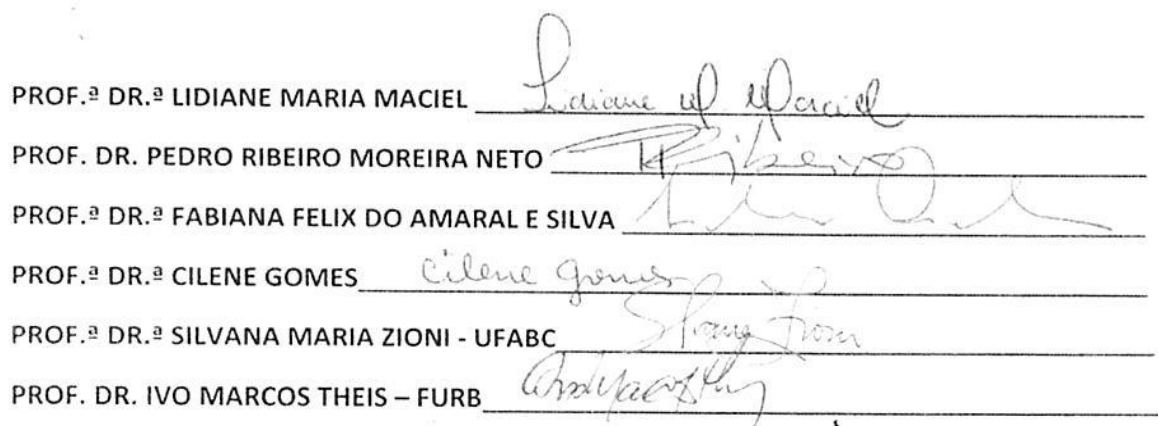 PROF.ª DR.ª LIDIANE MARIA MACIEL Lidiane M. Maciel
PROF. DR. PEDRO RIBEIRO MOREIRA NETO PRibeiro
PROF.ª DR.ª FABIANA FELIX DO AMARAL E SILVA
PROF.ª DR.ª CILENE GOMES Cilene Gomes
PROF.ª DR.ª SILVANA MARIA ZIONI - UFABC
PROF. DR. IVO MARCOS THEIS – FURB